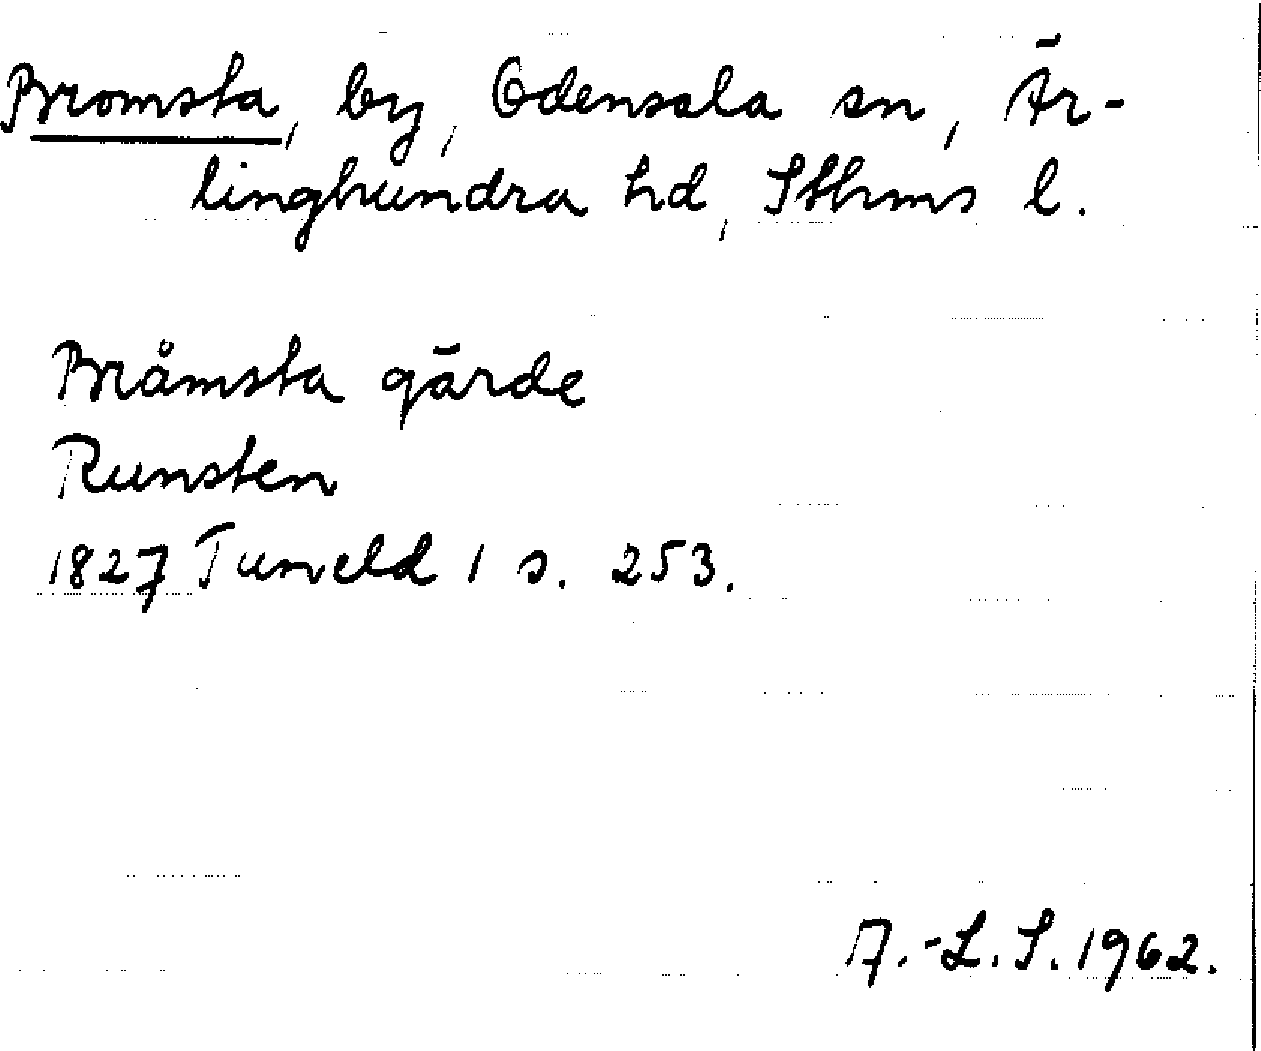 Bromsta, by, Odensala sn, Är-
linghundra hd, Sthms l.
Bråmsta gärde
Runsten
1827 Tuneld 1 s. 253.
A.-L. S. 1962.